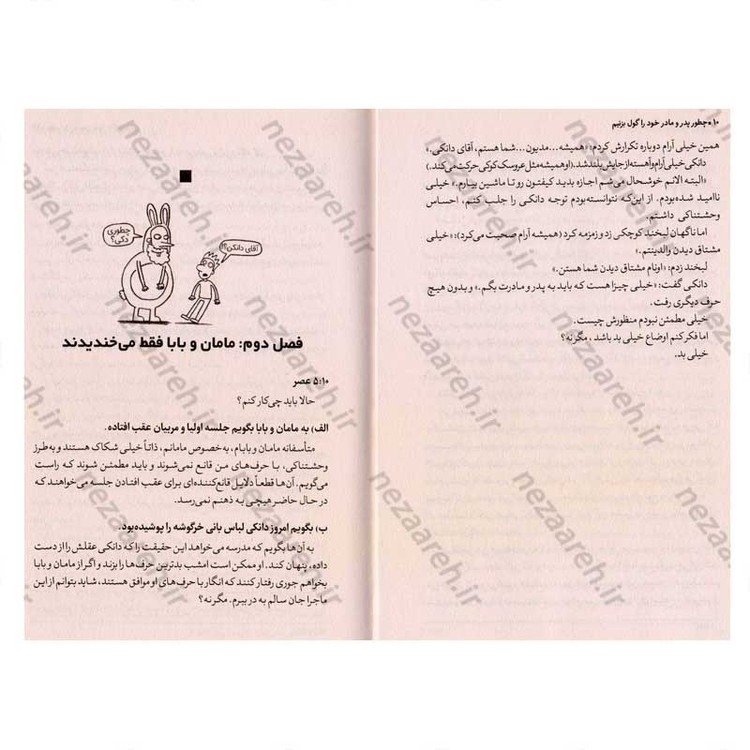 ۱۰ • چطور پدر و مادر خود را گول بزنیم
همین خیلی آرام دوباره تکرارش کردم: «همیشه...مدیون...شما هستم، آقای دانکی.»
دانکی خیلی آرام و آهسته از جایش بلند شد. (او همیشه مثل عروسک کوکی حرکت می‌کند.)
«البته الانم خوشحال می‌شم اجازه بدید کیفتون رو تا ماشین بیارم.» خیلی
ناامید شده‌بودم. از این‌که نتوانسته‌بودم توجه دانکی را جلب کنم، احساس
وحشتناکی داشتم.
اما ناگهان لبخند کوچکی زد و زمزمه کرد (همیشه آرام صحبت می‌کرد): «خیلی
مشتاق دیدن والدینتم.»
لبخند زدم: «اونام مشتاق دیدن شما هستن.»
دانکی گفت: «خیلی چیزا هست که باید به پدر و مادرت بگم.» و بدون هیچ
حرف دیگری رفت.
خیلی مطمئن نبودم منظورش چیست.
اما فکر کنم اوضاع خیلی بد باشد، مگر نه؟
خیلی بد.
چطوری
دکی؟
آقای دانکن؟!
فصل دوم: مامان و بابا فقط می‌خندیدند
۵:۱۰ عصر
حالا باید چی‌کار کنم؟
الف) به مامان و بابا بگویم جلسه اولیا و مربیان عقب افتاده.
متأسفانه مامان و بابام، به‌خصوص مامانم، ذاتاً خیلی شکاک هستند و به‌طرز
وحشتناکی، با حرف‌های من قانع نمی‌شوند و باید مطمئن شوند که راست
می‌گویم. آن‌ها قطعاً دلایل قانع‌کننده‌ای برای عقب افتادن جلسه می‌خواهند که
در حال حاضر هیچی به ذهنم نمی‌رسد.
ب) بگویم امروز دانکی لباس بانی خرگوشه را پوشیده‌بود.
به آن‌ها بگویم که مدرسه می‌خواهد این حقیقت را که دانکی عقلش را از دست
داده، پنهان کند. او ممکن است امشب بدترین حرف‌ها را بزند و اگر از مامان و بابا
بخواهم جوری رفتار کنند که انگار با حرف‌های او موافق هستند، شاید بتوانم از این
ماجرا جان سالم به در ببرم. مگر نه؟
nezaareh.ir
nezaareh.ir
nezaareh.ir
nezaareh.ir
nezaareh.ir
nezaareh.ir
nezaareh.ir
nezaareh.ir
nezaareh.ir